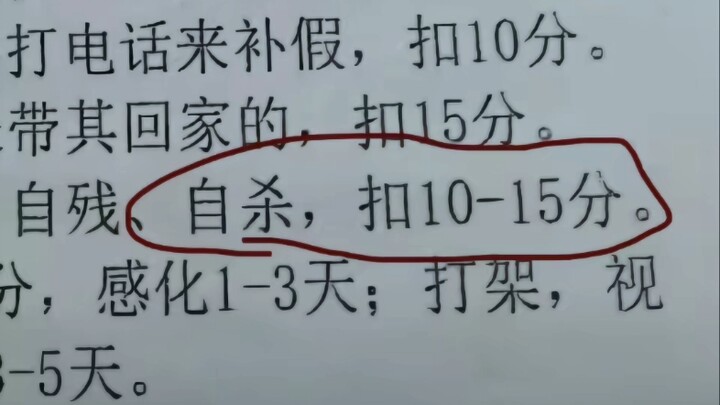 打电话来补假，扣10分。
带其回家的，扣15分。
自残、自杀，扣10-15分。
分，感化1-3天；打架，视
3-5天。